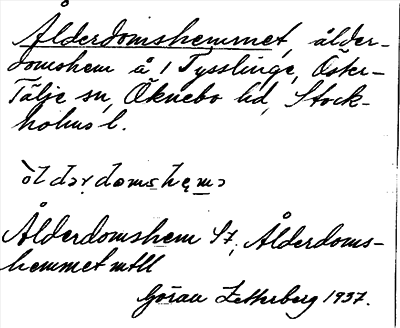 Ålderdomshemmet, ålder-
domshem å 1 Tysslinge, Öster-
Tälje sn, Öknebo hd, Stock-
holms l.
Ålderdomshem St, Ålderdoms-
hemmet mtll
Göran Zetterberg 1937.